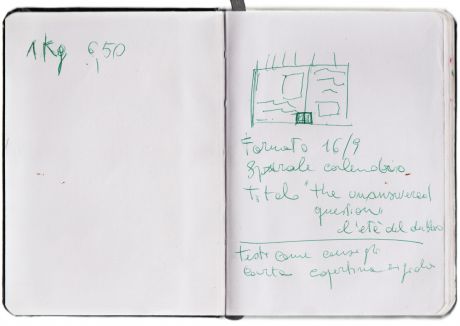 1 Kg 650
Formato 16/9
Spirale calendario
Titolo "the unanswered
question"
l'età del dubbio
Testi come consigli
carta copertina rigida